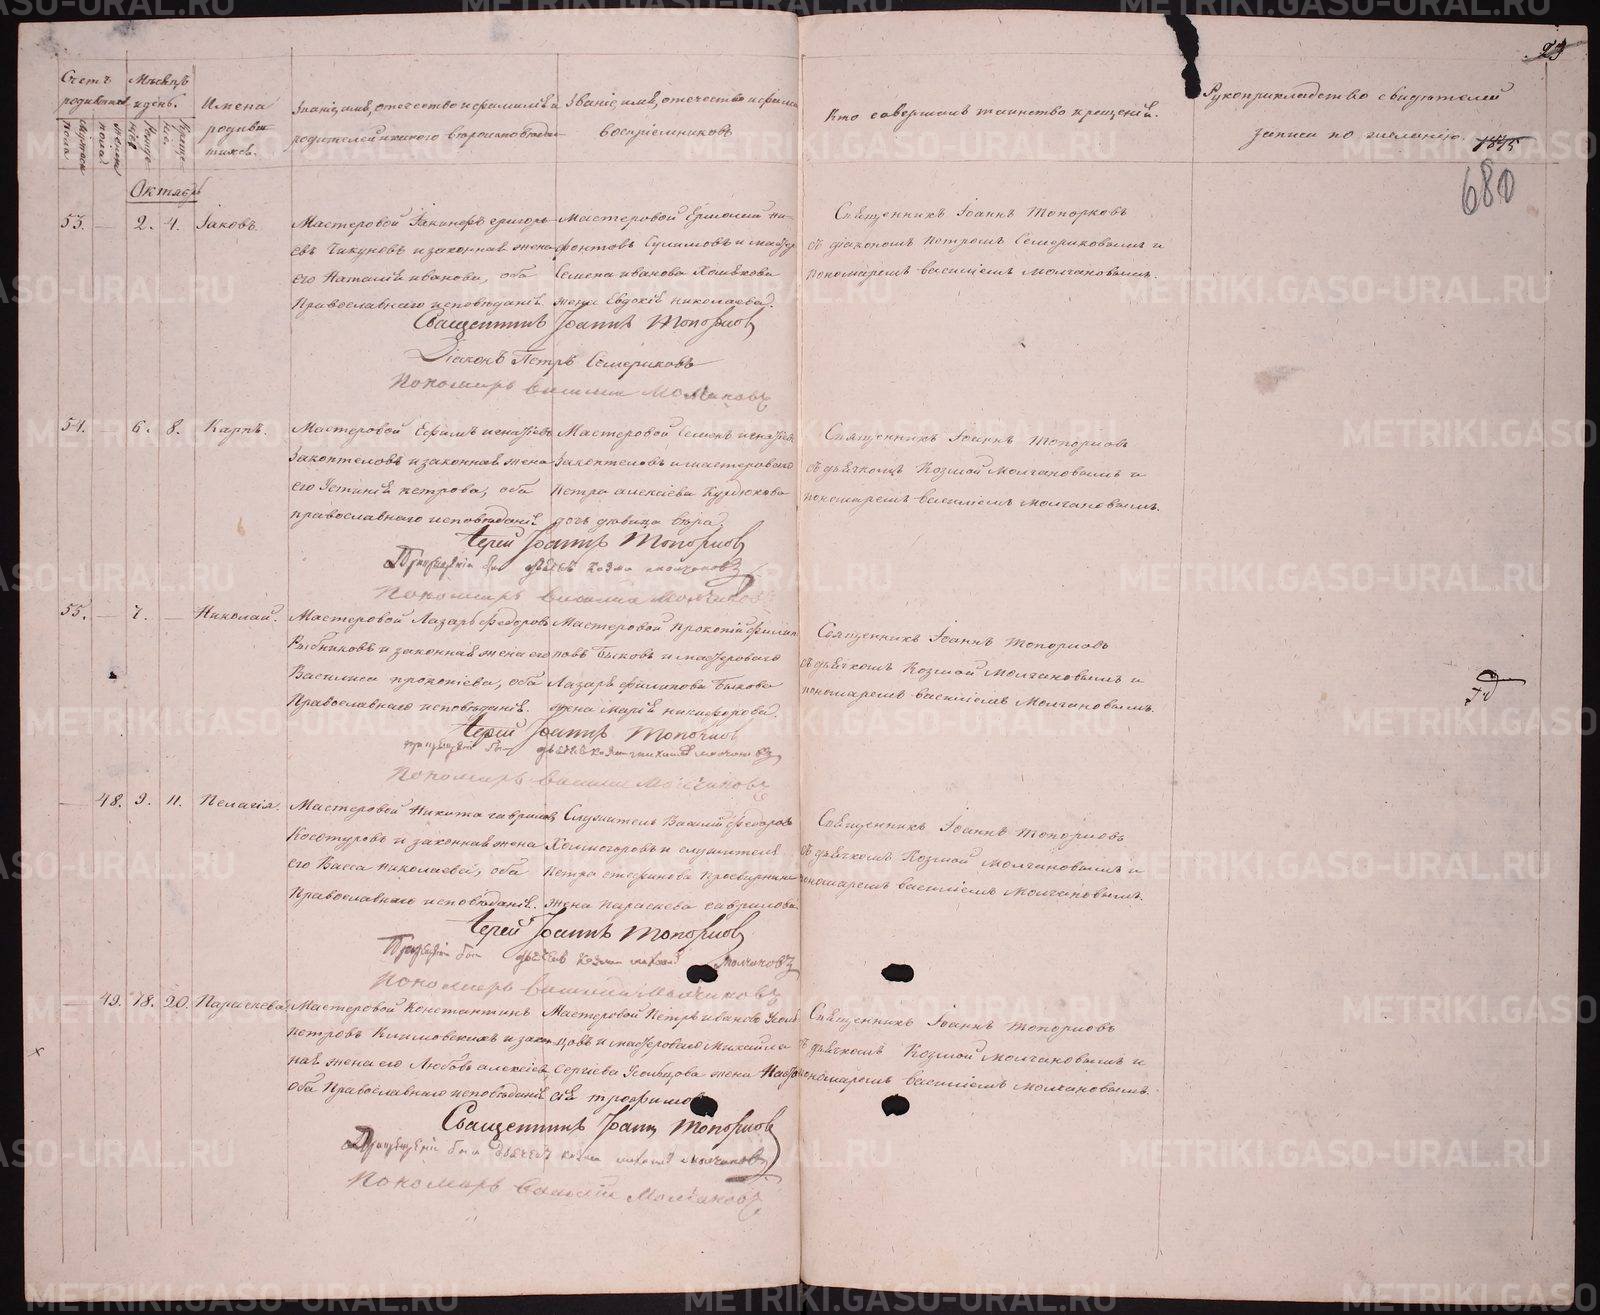 Счетъ родившихся
Мѣсяцъ и день.
Имена родившихся.
Званіе, имя, отечество и фамилія
родителей и какого вѣроисповѣданія
Званіе, имя, отечество и фамилія
воспріемниковъ
Кто совершалъ таинство крещенія.
Рукоприкладство свидѣтелей
записи по желанію.
1845
680
Октябрь
53. — 2. 4. Іаковъ.
Мастеровой Іакинфъ Григорь-
евъ Чикуновъ и законная жена
его Наталія Иванова, оба
Православнаго исповѣданія.
Мастеровой Ермолай Ни-
фонтовъ Сулимовъ и мастер
Семена Иванова Хомякова
жена Евдокія Николаева.
Священникъ Іоаннъ Топорковъ
съ діакономъ Петромъ Семериковымъ и
пономаремъ Василіемъ Молчановымъ.
Священникъ Іоаннъ Топорковъ
Діаконъ Петръ Семериковъ
Пономарь Василий Молчановъ
54. — 6. 8. Карпъ.
Мастеровой Ефимъ Игнатіевъ
Закоптеловъ и законная жена
его Устинія Петрова, оба
православнаго исповѣданія
Мастеровой Семенъ Игнатіевъ
Закоптеловъ и мастероваго
Петра Алексіева Курдюкова
дочь дѣвица Вѣра.
Священникъ Іоаннъ Топорковъ
съ дьячкомъ Козмой Молчановымъ и
пономаремъ Василіемъ Молчановымъ.
Іерей Іоаннъ Топорковъ
дьячекъ Козма Молчановъ
Пономарь Василий Молчановъ
55. — 7. — Николай.
Мастеровой Лазарь Федоровъ
Рыбниковъ и законная жена его
Василиса Прокопіева, оба
Православнаго исповѣданія.
Мастеровой Прокопій Филип-
повъ Быковъ и мастероваго
Лазаря Филипова Быкова
жена Марія Никифорова.
Священникъ Іоаннъ Топорковъ
съ дьячкомъ Козмой Молчановымъ и
пономаремъ Василіемъ Молчановымъ.
Іерей Іоаннъ Топорковъ
Пономарь Василий Молчановъ
— 48. 9. 11. Пелагія.
Мастеровой Никита Гавриловъ
Косотуровъ и законная жена
его Васса Николаева, оба
Православнаго исповѣданія.
Служитель Василій Федоровъ
Холмогоровъ и служителя
Петра Стефанова
жена Параскева Гаврилова
Священникъ Іоаннъ Топорковъ
съ дьячкомъ Козмой Молчановымъ и
пономаремъ Василіемъ Молчановымъ.
Іерей Іоаннъ Топорковъ
Молчановъ
Пономарь Василий Молчановъ
— 49. 18. 20. Параскева.
Мастеровой Константинъ
Петровъ Климовскихъ и закон-
ная жена его Любовь Алексіева,
оба Православнаго исповѣданія
Мастеровой Петръ Ивановъ Усоль-
цовъ и мастероваго Михайла
Сергіева Усольцова жена Наста-
сія Трофимова
Священникъ Іоаннъ Топорковъ
съ дьячкомъ Козмой Молчановымъ и
пономаремъ Василіемъ Молчановымъ.
Священникъ Іоаннъ Топорковъ
дьячекъ Козма Молчановъ
Пономарь Василий Молчановъ
METRIKI.GASO-URAL.RU